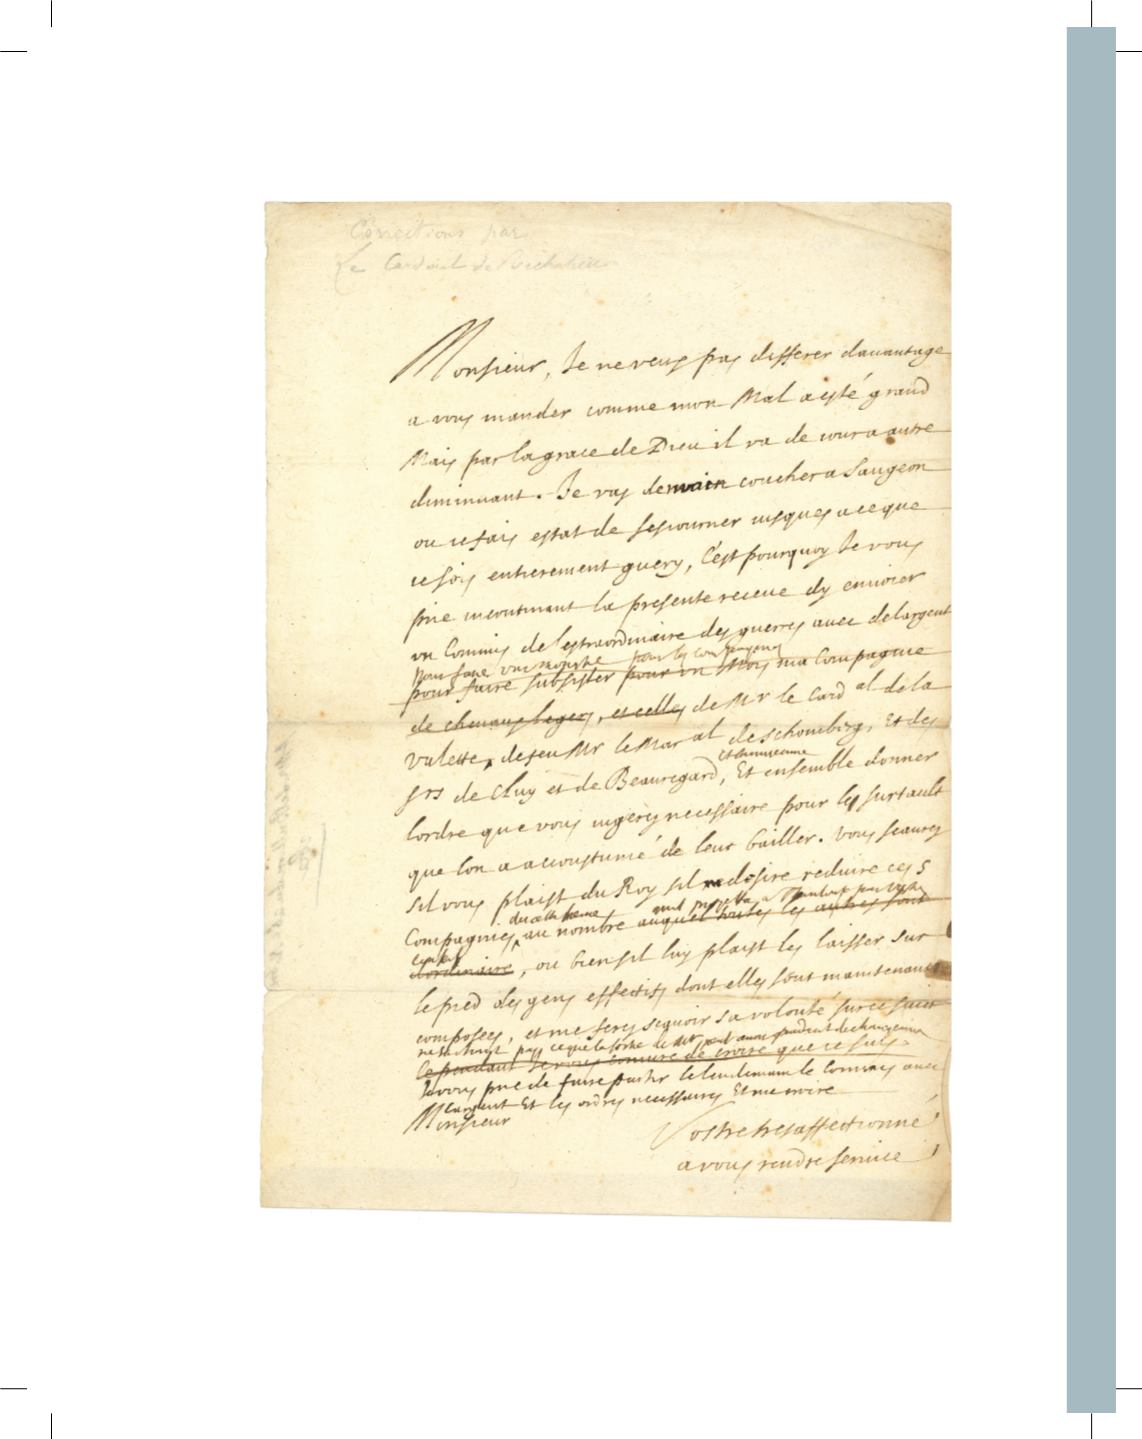 Corrections par
Le Cardinal de Richelieu
Monsieur, Je ne veux pas differer davantage
a vous mander comme mon Mal a esté grand
Mais par la grace de Dieu il va de jour a autre
diminuant. Je vas demain coucher a Saugeon
ou je fais estat de sejourner jusques a ce que
je sois entierement guery, C'est pourquoy Je vous
prie incontinant la presente receue dy envoier
un Commis de lextraordinaire des guerres avec de largent
pour faire une monstre pour les compagnies
pour faire subsister pour un Mois ma Compagnie
de chevaux legers, et celles de Mr le Card al de la
Valette, de feu Mr le Mar al de Schomberg, Et des
srs de Cluy et de Beauregard, Et ensemble donner
lordre que vous jugerez necessaire pour les surtault
que lon a accoustumé de leur bailler. Vous scaurez
sil vous plaist du Roy sil desire reduire ces 5
Compagnies au nombre auquel toutes les autres sont
dordinaire, ou bien sil luy plaist les laisser sur
le pied des gens effectifs dont elles sont maintenant
composées, et me ferez scavoir sa volonté sur ce suiet
Cependant Je vous conjure de croire que je suis
Je vous prie de faire partir le lendemain le Commis avec
largent Et les ordres necessaires Et me croire
Monsieur
Vostre tres affectionné
a vous rendre service